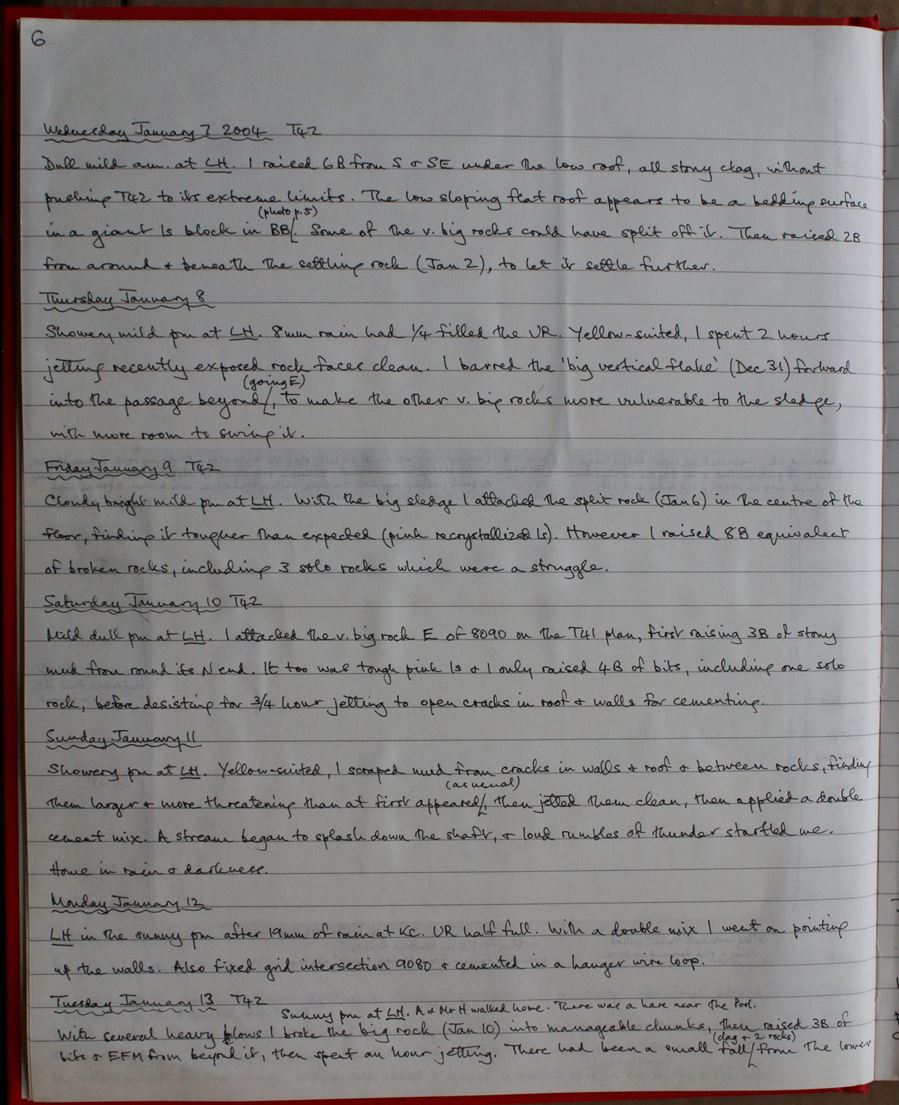 6
Wednesday January 7 2004 T42
Dull mild am. at LH. I raised 6B from S & SE under the low roof, all stony clag, without
pushing T42 to its extreme limits. The low sloping flat roof appears to be a bedding surface
(photo p.5)
in a giant ls block in BB. Some of the v. big rocks could have split off it. Then raised 2B
from around & beneath the settling rock (Jan 2), to let it settle further.
Thursday January 8
Showery mild pm at LH. 8mm rain had 1/4 filled the UR. Yellow-suited, I spent 2 hours
jetting recently exposed rock faces clean. I barred the 'big vertical flake' (Dec 31) forward
(going E)
into the passage beyond, to make the other v. big rocks more vulnerable to the sledge,
with more room to swing it.
Friday January 9 T42
Cloudy bright mild pm at LH. With the big sledge I attacked the split rock (Jan 6) in the centre of the
floor, finding it tougher than expected (pink recrystallized ls). However I raised 8B equivalent
of broken rocks, including 3 solo rocks which were a struggle.
Saturday January 10 T42
Mild dull pm at LH. I attacked the v. big rock E of 8090 on the T41 plan, first raising 3B of stony
mud from round its N end. It too was tough pink ls & I only raised 4B of bits, including one solo
rock, before desisting for 3/4 hour jetting to open cracks in roof & walls for cementing.
Sunday January 11
Showery pm at LH. Yellow-suited, I scraped mud from cracks in walls & roof & between rocks, finding
(as usual)
them larger & more threatening than at first appeared, then jetted them clean, then applied a double
cement mix. A stream began to splash down the shaft, & loud rumbles of thunder startled me.
Home in rain & darkness.
Monday January 12
LH in the sunny pm after 19mm of rain at KC. UR half full. With a double mix I went on pointing
up the walls. Also fixed grid intersection 9080 & cemented in a hanger wire loop.
Tuesday January 13 T42
Sunny pm at LH. A & Mr H walked home. There was a hare near the Pool.
With several heavy blows I broke the big rock (Jan 10) into manageable chunks, then raised 3B of
(clag & 2 rocks)
bits & EFM from beyond it, then spent an hour jetting. There had been a small fall from the lower